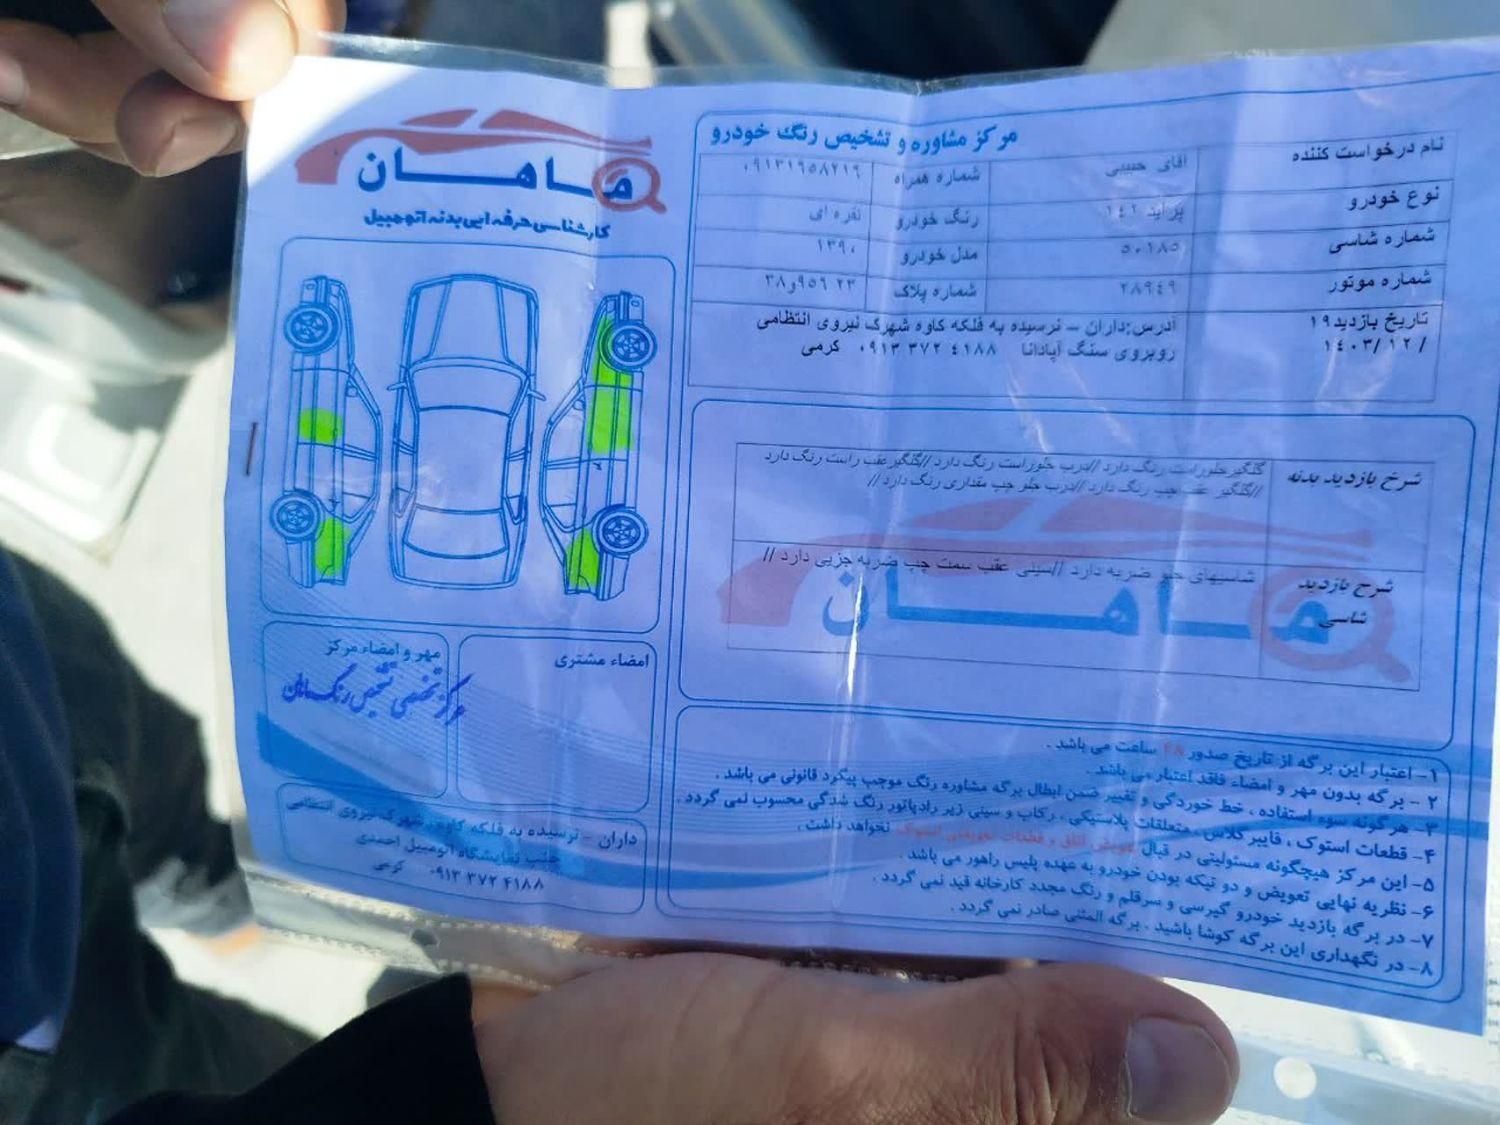 ماهان
کارشناسی حرفه ایی بدنه اتومبیل
مرکز مشاوره و تشخیص رنگ خودرو
نام درخواست کننده آقای حبیبی شماره همراه ۰۹۱۳۱۹۵۸۲۱۹
نوع خودرو پراید ۱۴۲ رنگ خودرو نقره ای
شماره شاسی ۵۰۱۸۵ مدل خودرو ۱۳۹۰
شماره موتور ۲۸۹۴۹ شماره پلاک ۲۳ ۹۵۶و۳۸
تاریخ بازدید۱۹ آدرس:داران – نرسیده به فلکه کاوه شهرک نیروی انتظامی
/۱۴۰۳/۱۲ روبروی سنگ آپادانا ۰۹۱۳ ۳۷۲ ۴۱۸۸ کرمی
شرح بازدید بدنه گلگیرجلوراست رنگ دارد //درب جلوراست رنگ دارد //گلگیرعقب راست رنگ دارد
//گلگیر عقب چپ رنگ دارد //درب جلو چپ مقداری رنگ دارد //
شرح بازدید شاسی شاسیهای جلو ضربه دارد //سینی عقب سمت چپ ضربه جزیی دارد //
ماهان
امضاء مشتری
مهر و امضاء مرکز
مرکز تخصصی تشخیص رنگ ماهان
داران - نرسیده به فلکه کاوه، شهرک نیروی انتظامی
جنب نمایشگاه اتومبیل احمدی
۰۹۱۳ ۳۷۲ ۴۱۸۸ کرمی
۱- اعتبار این برگه از تاریخ صدور ۴۸ ساعت می باشد .
۲ - برگه بدون مهر و امضاء فاقد اعتبار می باشد .
۳- هرگونه سوء استفاده ، خط خوردگی و تغییر ضمن ابطال برگه مشاوره رنگ موجب پیگرد قانونی می باشد .
۴- قطعات استوک ، فایبر گلاس ، متعلقات پلاستیکی ، رکاب و سینی زیر رادیاتور رنگ شدگی محسوب نمی گردد .
۵- این مرکز هیچگونه مسئولیتی در قبال تعویض اتاق و قطعات تعویضی استوک نخواهد داشت .
۶- نظریه نهایی تعویض و دو تیکه بودن خودرو به عهده پلیس راهور می باشد .
۷- در برگه بازدید خودرو گیرسی و سرقلم و رنگ مجدد کارخانه قید نمی گردد .
۸- در نگهداری این برگه کوشا باشید . برگه المثنی صادر نمی گردد .